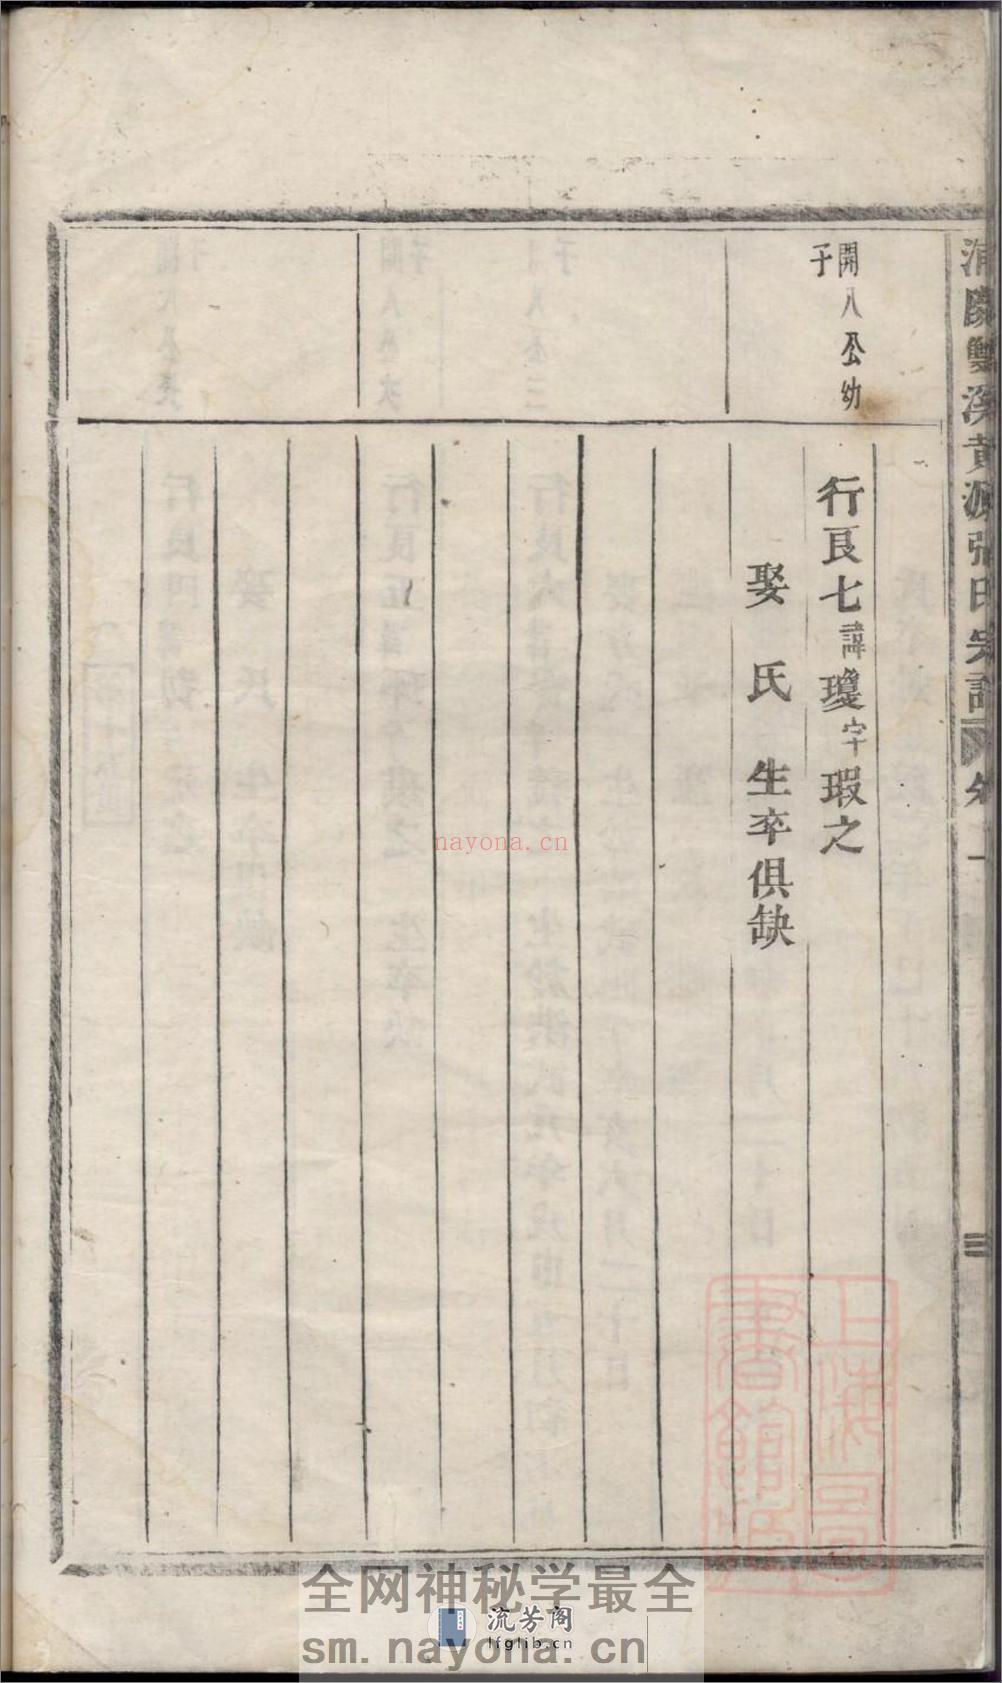 開八公幼
子
行良七諱瓊字瑕之
娶氏生卒俱缺
雙溪黃源張氏宗譜
卷一
三
上海圖
書館藏
nayona.cn
全网神秘学最全
流芳阁
lfglib.cn
sm.nayona.cn